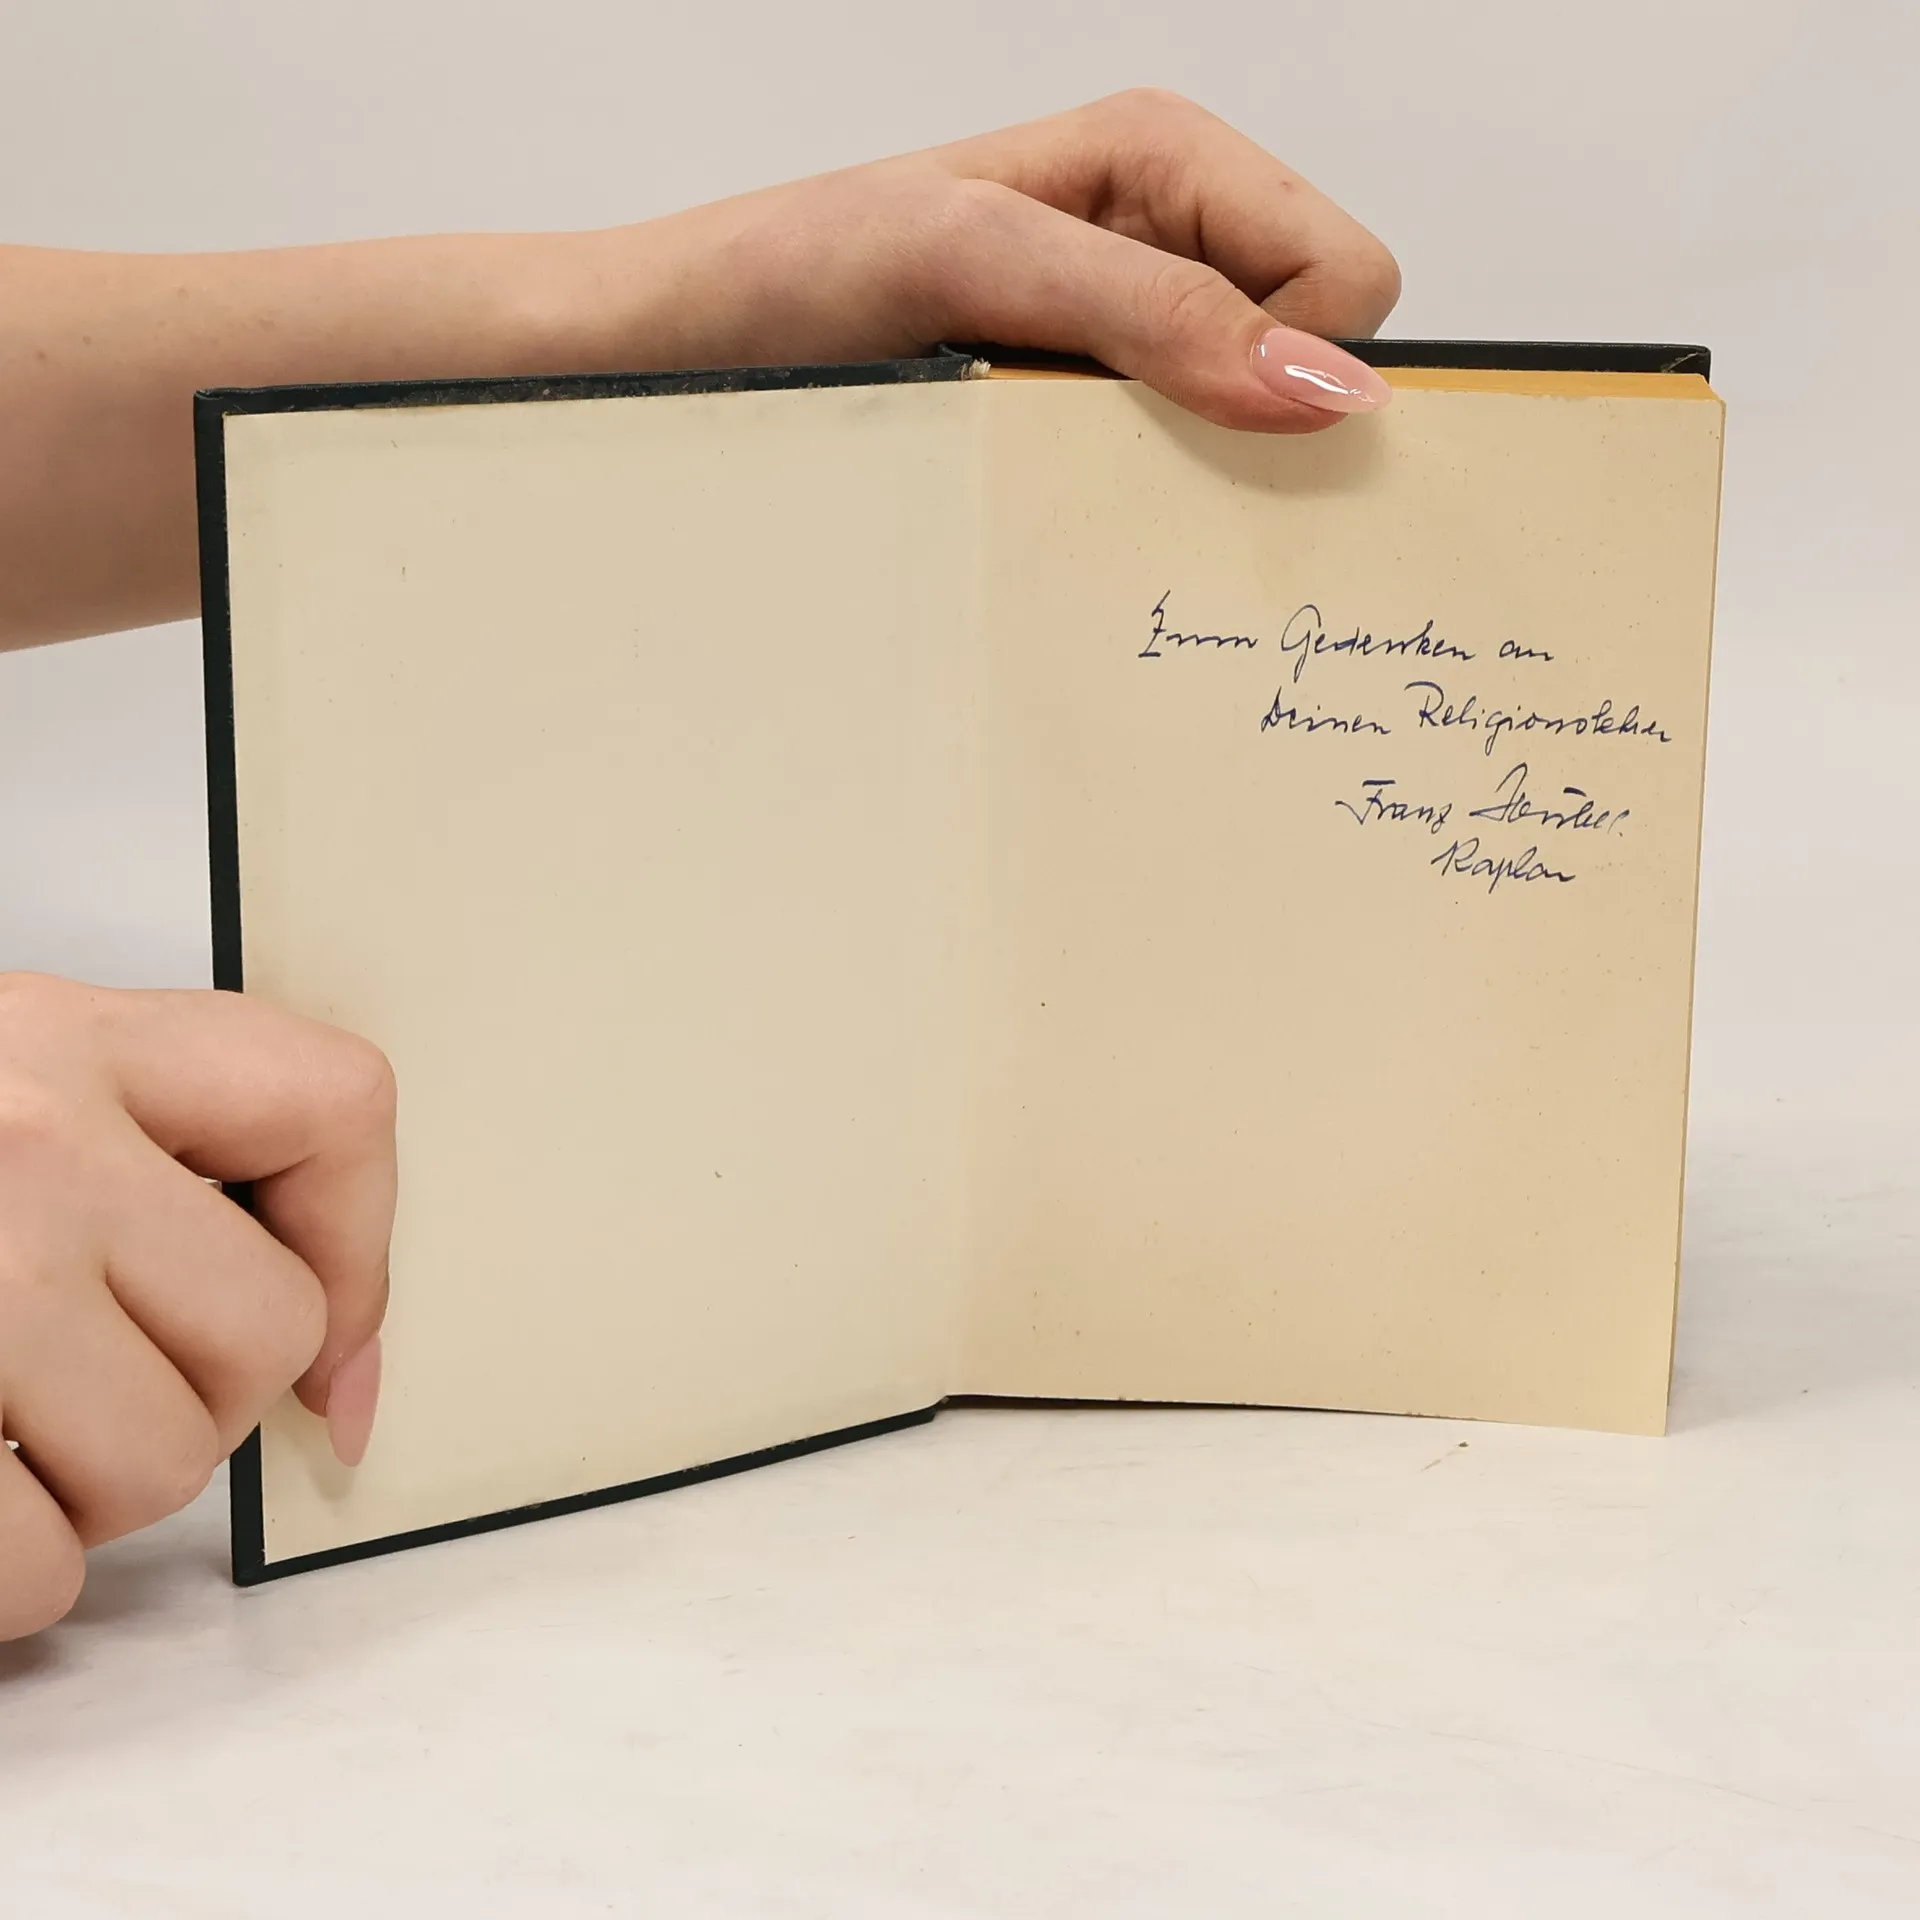 Zum Gedenken an
Deinen Religionslehrer
Franz
Kaplan